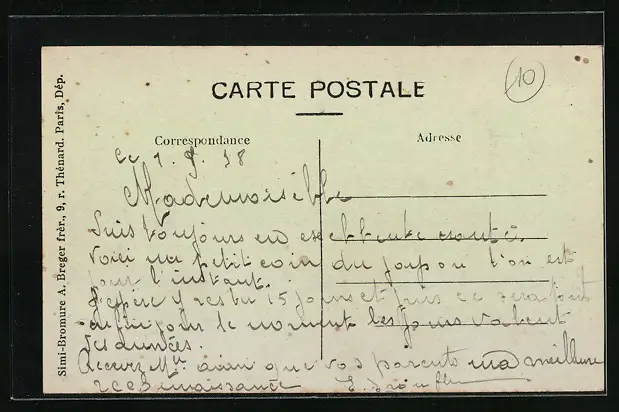 CARTE POSTALE
10
Correspondance
Adresse
Simi-Bromure A. Breger frèr., 9, r. Thénard. Paris, Dép.
Ce 1. 18
Mademoiselle
Suis toujours en excellente santé.
Voici un petit coin du où l'on est
pour l'instant.
J'espère y rester 15 jours et puis ce sera tout
pour le moment les jours valent
des années.
Recevez Mlle ainsi que vos parents ma meilleure
reconnaissance E.